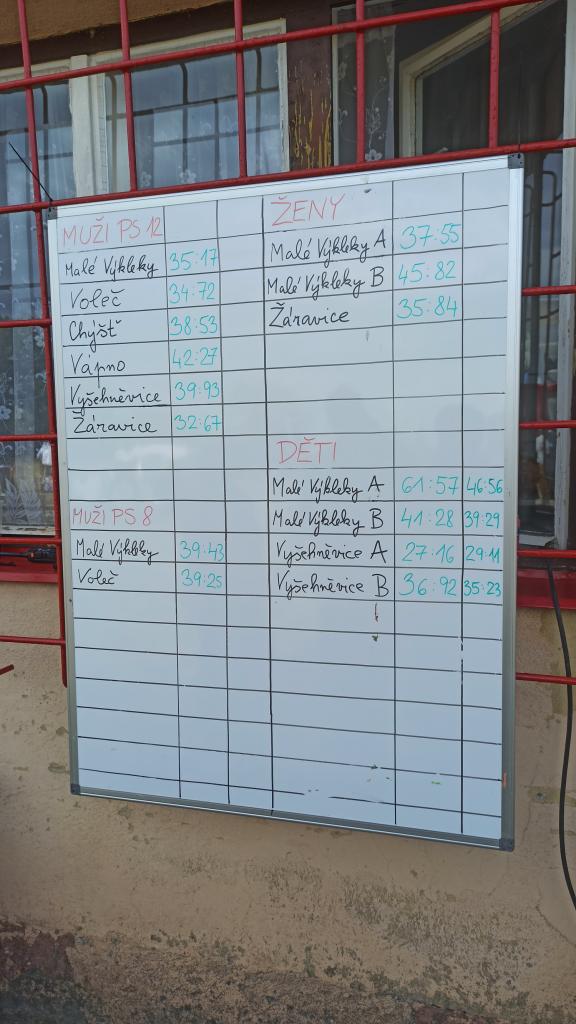 MUŽI PS 12
Malé Výkleky 35:17
Voleč 34:72
Chýšť 38:53
Vápno 42:27
Vyšehněvice 39:93
Žáravice 32:67
MUŽI PS 8
Malé Výkleky 39:43
Voleč 39:25
ŽENY
Malé Výkleky A 37:55
Malé Výkleky B 45:82
Žáravice 35:84
DĚTI
Malé Výkleky A 61:57 46:56
Malé Výkleky B 41:28 39:29
Vyšehněvice A 27:16 29:11
Vyšehněvice B 36:92 35:23